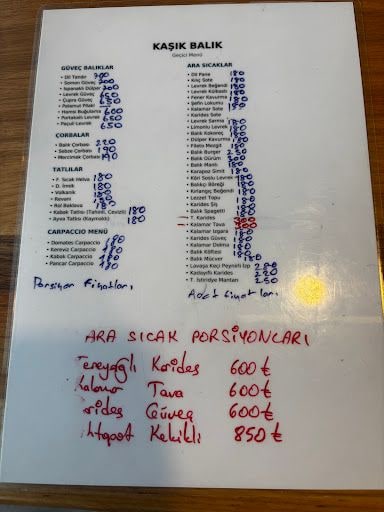 KAŞIK BALIK
Geçici Menü
GÜVEÇ BALIKLAR
• Dil Tandır 700
• Somon Güveç 700
• Ispanaklı Dülper 700
• Levrek Güveç 650
• Çupra Güveç 650
• Palamut Pilaki
• Hamsi Buğulama 600
• Portakallı Levrek 650
• Paçuli Levrek 650
ÇORBALAR
• Balık Çorbası 220
• Sebze Çorbası 190
• Mercimek Çorbası 190
TATLILAR
• F. Sakız Helva 180
• D. İrmik 180
• Volkanik 180
• Revani 180
• Bal Baklava 180
• Kabak Tatlısı (Tahinli, Cevizli) 180
• Ayva Tatlısı (Kaymaklı) 180
CARPACCIO MENÜ
• Domates Carpaccio 180
• Kereviz Carpaccio 180
• Kabak Carpaccio 180
• Pancar Carpaccio 180
Porsiyon fiyatları
ARA SICAKLAR
• Dil Pane 180
• Kılıç Sote 180
• Levrek Beğendi 180
• Levrek Külbastı 180
• Fener Kavurma 180
• Şefin Lokumu 180
• Kalamar Sote 180
• Karides Sote
• Levrek Sarma 180
• Limonlu Levrek 180
• Balık Kokoreç 180
• Dülper Kavurma 180
• Fileto Mezgit 180
• Balık Burger 250
• Balık Dürüm 300
• Balık Mantı 180
• Karapoz Simit 180
• Köri Soslu Levrek 180
• Balıkçı Böreği 180
• Kırlangıç Beğendi 180
• Lezzet Topu 180
• Karides Şiş 180
• Balık Spagetti 180
• T. Karides 300
• Kalamar Tava 300
• Kalamar Izgara 180
• Karides Güveç 180
• Kalamar Dolma 180
• Balık Köftesi 180
• Balık Mücver 180
• Lavaşa Keçi Peynirli Izp
• Kadayıflı Karides 220
• T. İstiridye Mantarı 250
Adet fiyatları
ARA SICAK PORSİYONLARI
Tereyağlı Karides 600₺
Kalamar Tava 600₺
Karides Güveç 600₺
Ahtapot Kekikli 850₺